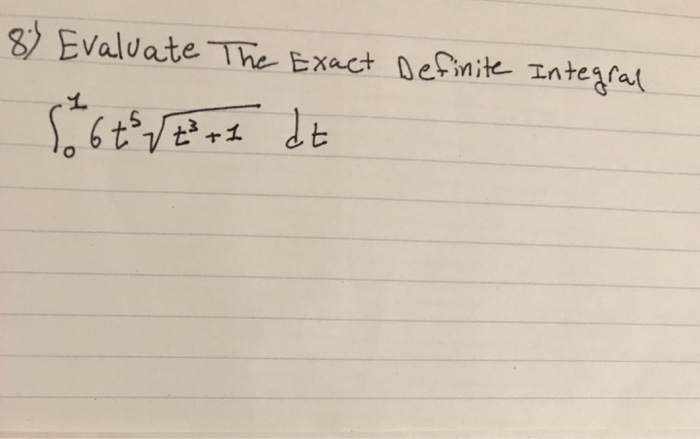 8) Evaluate The Exact Definite Integral
∫₀¹ 6t⁵√(t³+1) dt